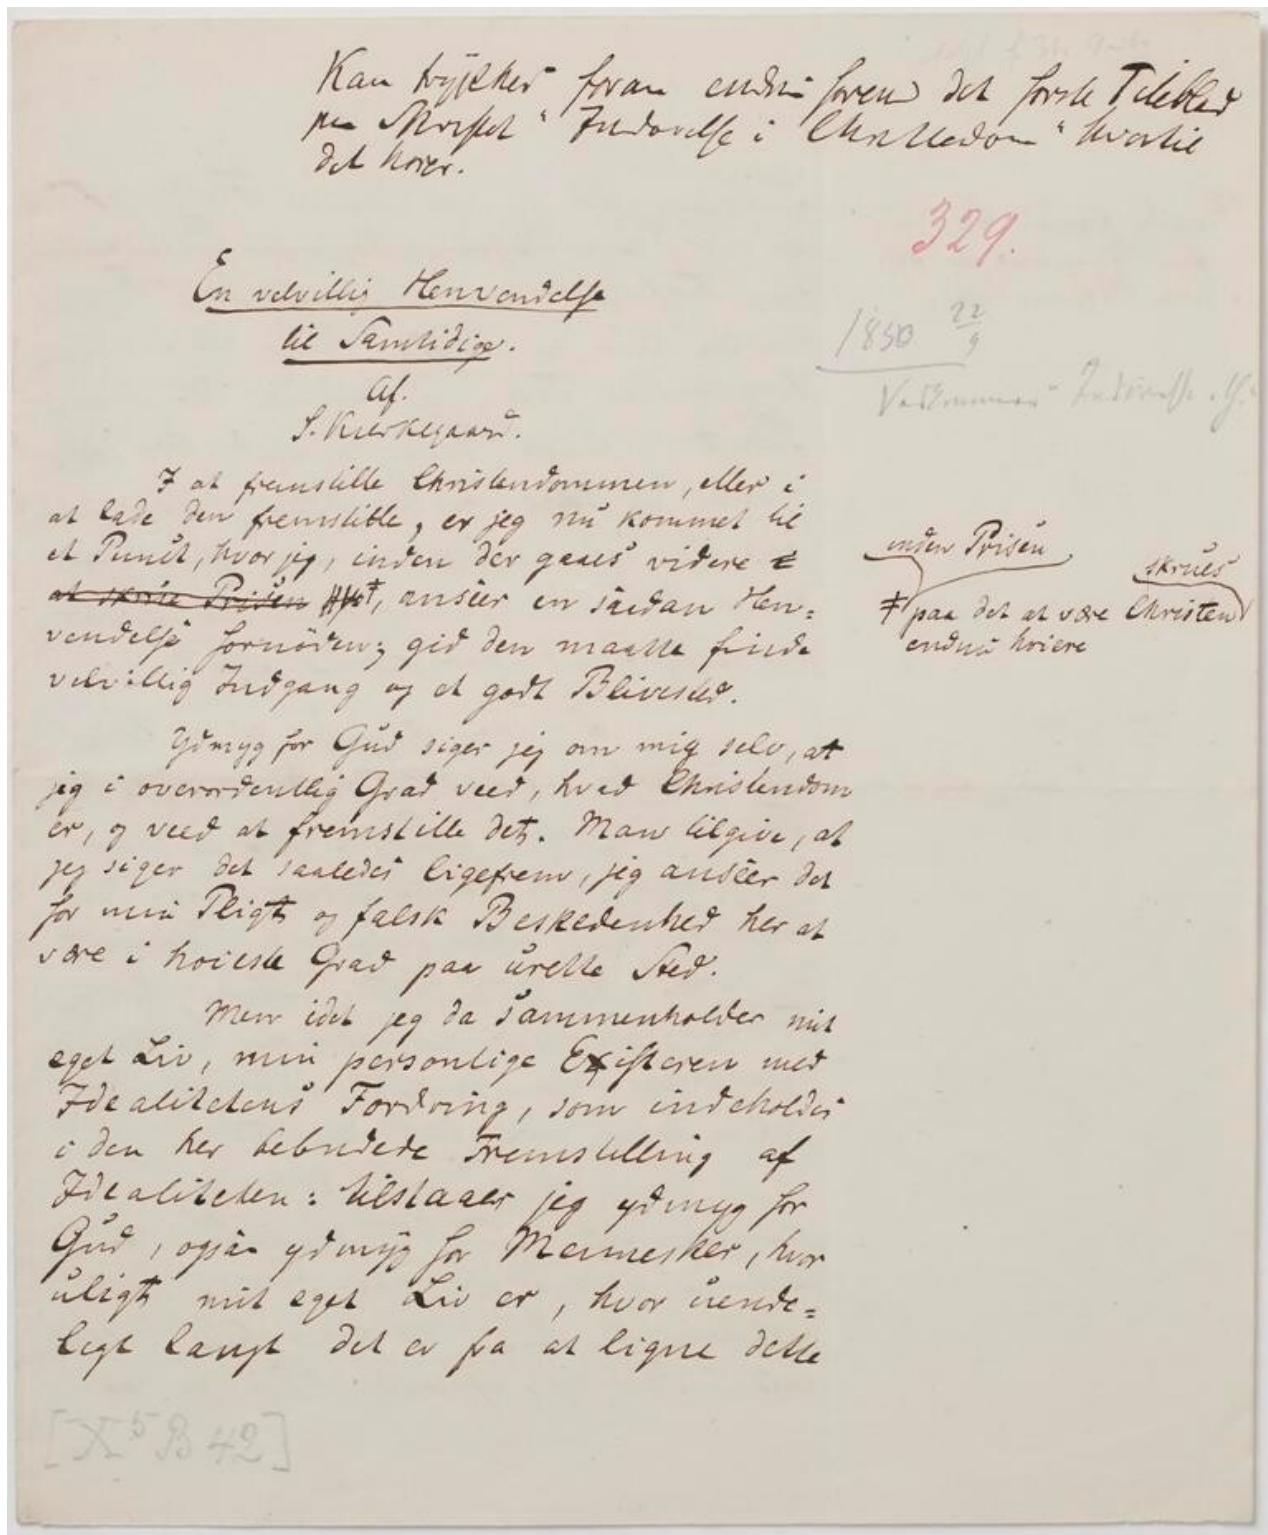 Kan trykkes foran endnu foren det første Titelblad
paa Skriftet "Indøvelse i Christendom" hvortil
det hører.
329.
En velvillig Henvendelse
til Samtidige.
Af.
S. Kierkegaard.
1850 22/9
Vedkommer Indøvelse i Ch.
I at fremstille Christendommen, eller i
at lade den fremstille, er jeg nu kommet til
et Punct, hvor jeg, inden der gaaes videre
at skrue Prisen ǂ, anseer en saadan Hen=
vendelse fornøden; gid den maatte finde
velvillig Indgang og et godt Blivested.
inden Prisen
skrues
ǂ paa det at være Christen
endnu høiere
Ydmyg for Gud siger jeg om mig selv, at
jeg i overordentlig Grad veed, hvad Christendom
er, og veed at fremstille det. Man tilgive, at
jeg siger det saaledes ligefrem, jeg anseer det
for min Pligt og falsk Beskedenhed her at
være i høieste Grad paa urette Sted.
Men idet jeg da sammenholder mit
eget Liv, min personlige Existeren med
Idealitetens Fordring, som indeholdes
i den her bebudede Fremstilling af
Idealiteten: tilstaaer jeg ydmyg for
Gud, ogsaa ydmyg for Mennesker, hvor
uligt mit eget Liv er, hvor uende=
ligt langt det er fra at ligne dette
[X⁵ B 42]